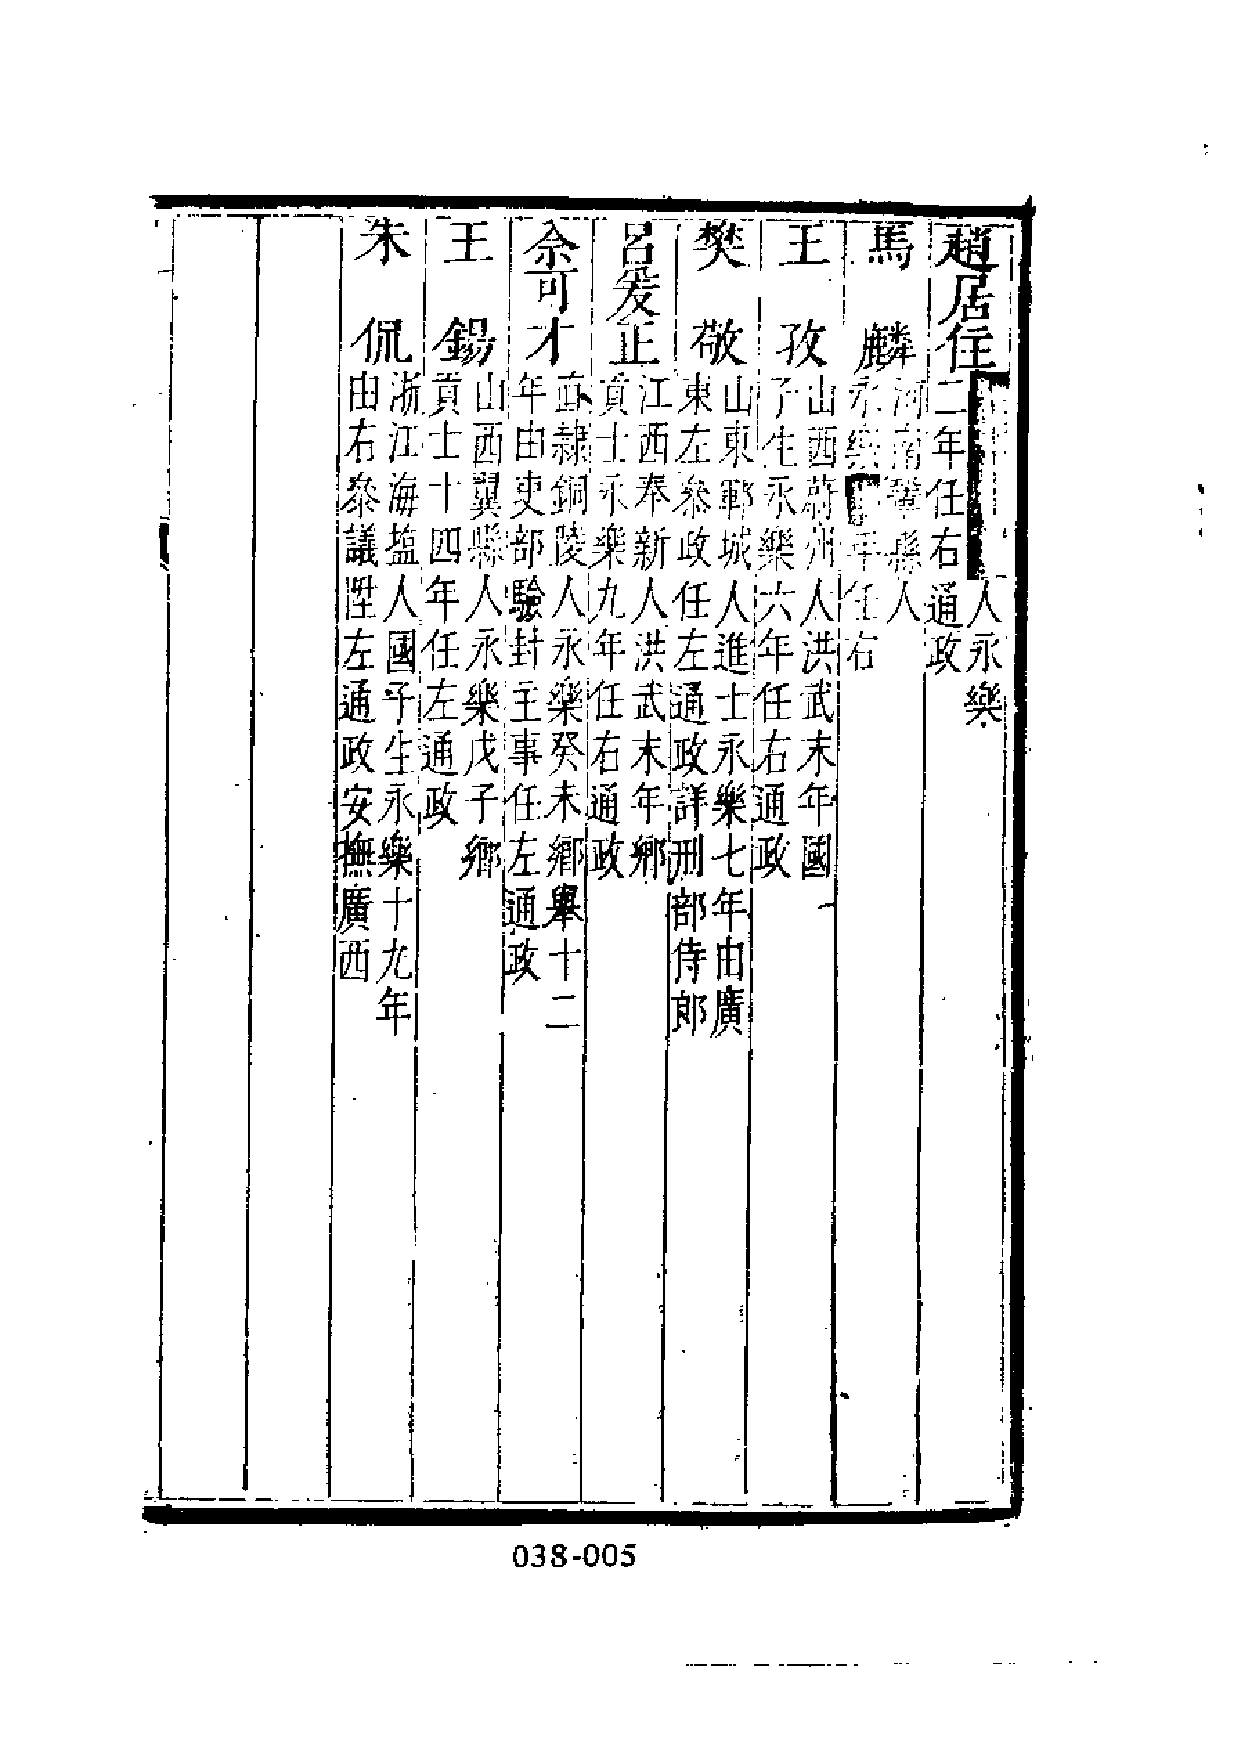 趙居任 人永樂
二年任右通政
馬麟 河南鞏縣人
永樂 年任右
王孜 山西蔚州人洪武末年國
子生永樂六年任右通政
樊敬 山東鄆城人進士永樂七年由廣
東左叅政任左通政詳刑部侍郎
呂爰正 江西奉新人洪武末年鄉
貢士永樂九年任右通政
佘可才 直隷銅陵人永樂癸未鄉舉十二
年由吏部驗封主事任左通政
王鍚 山西翼縣人永樂戊子鄉
貢士十四年任左通政
朱侃 浙江海塩人國子生永樂十九年
由右叅議陞左通政安撫廣西
038-005